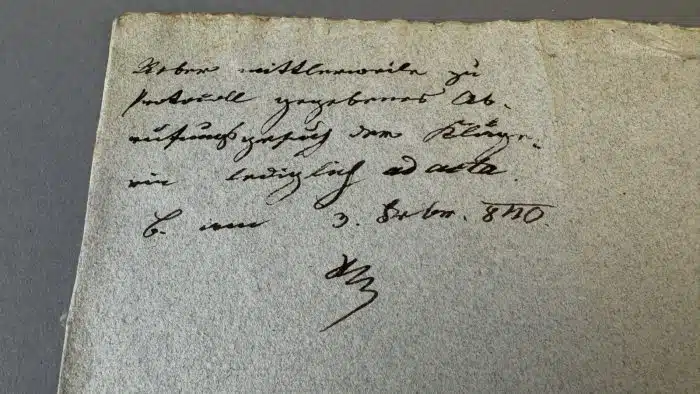 Ueber mittlerweile zu
Protocoll gegebenes Ab-
rufungsgesuch der Kläge-
rin lediglich ad acta.
B. am 3. Febr. 840.